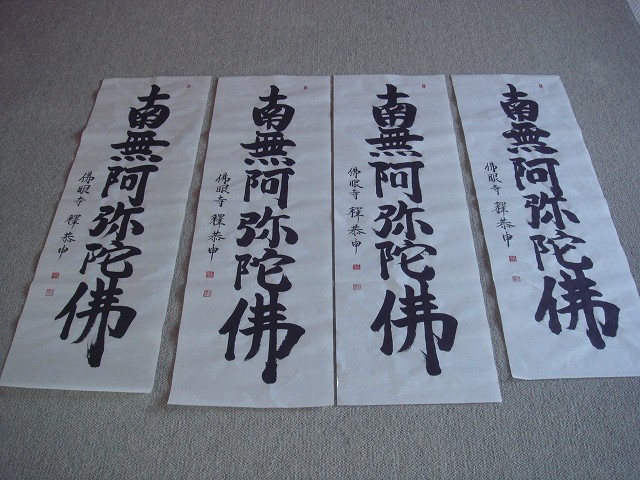 南無阿弥陀佛
佛眼寺 釋恭申
南無阿弥陀佛
佛眼寺 釋恭申
南無阿弥陀佛
佛眼寺 釋恭申
南無阿弥陀佛
佛眼寺 釋恭申